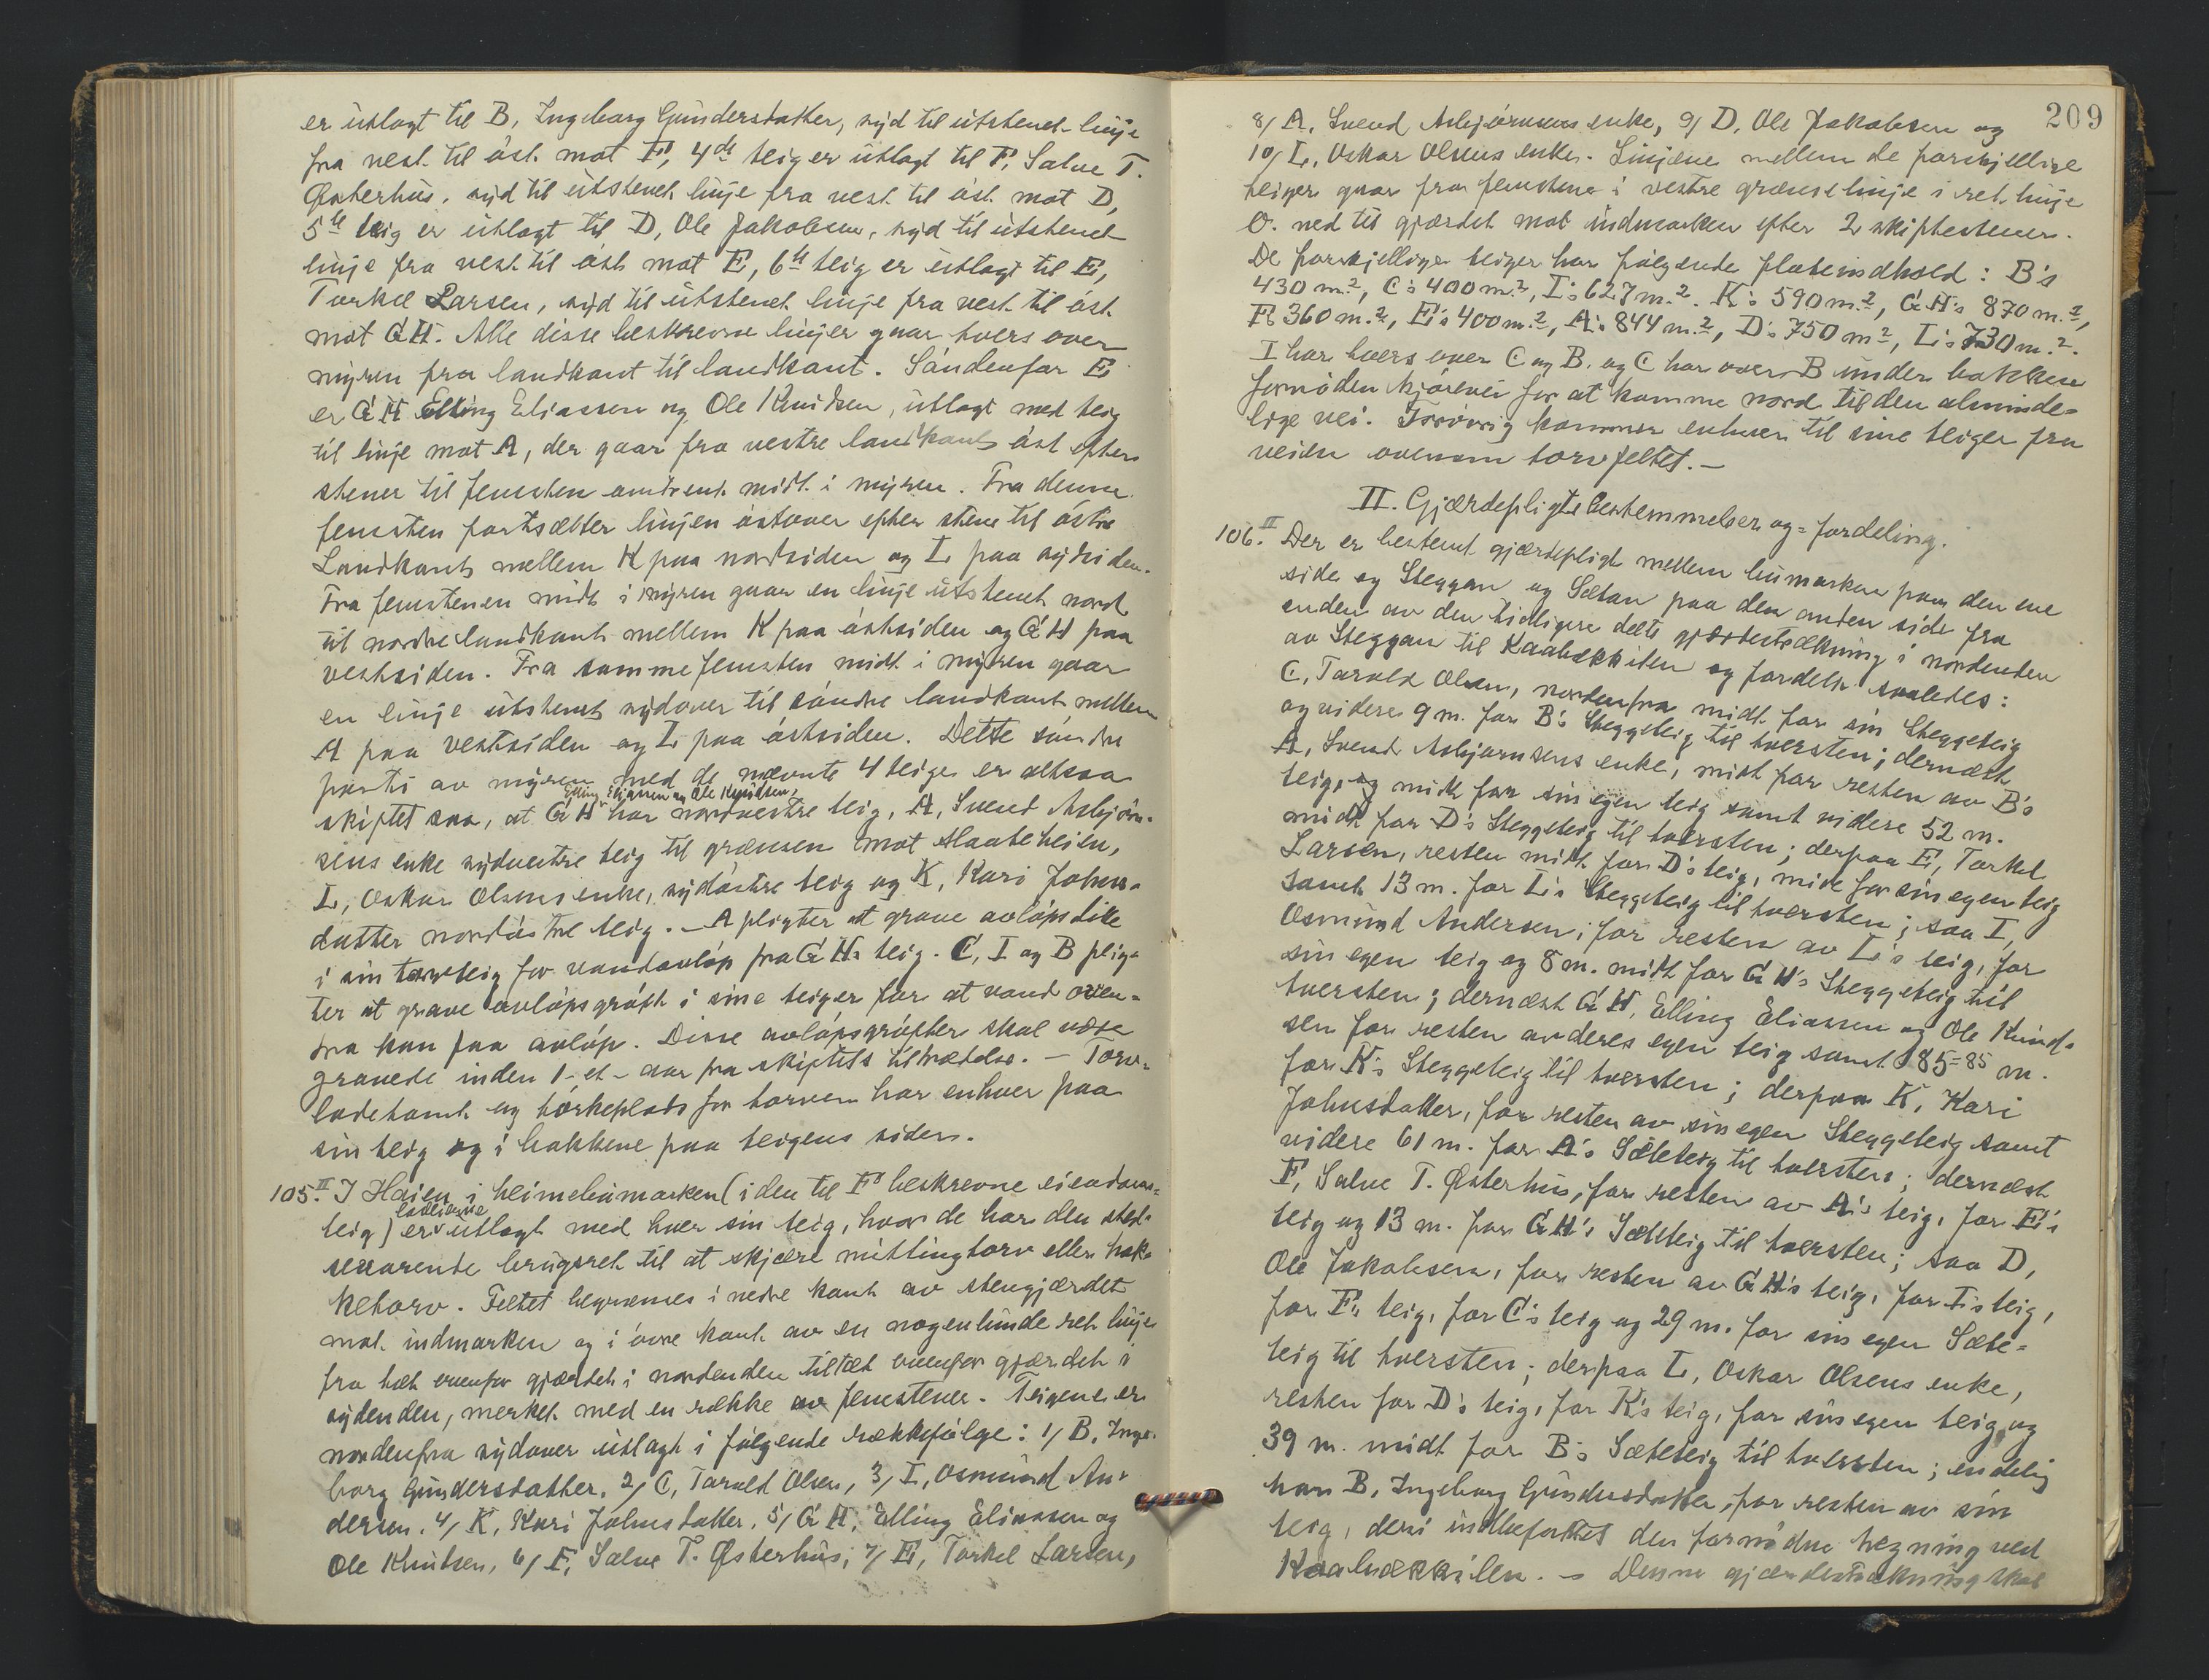 er utlagt til B, Ingeborg Gundersdatter, syd til utstenet linje
fra vest til øst mot F, 4de teig er utlagt til F, Salve T.
Østerhus, syd til utstenet linje fra vest til øst mot D,
5te teig er utlagt til D, Ole Jakobsen, syd til utstenet
linje fra vest til øst mot E, 6te teig er utlagt til E,
Torkel Larsen, syd til utstenet linje fra vest til øst
mot GH. Alle disse beskrevne linjer gaar tvers over
myren fra landkant til landkant. Søndenfor E
er GH Elling Eliassen og Ole Knudsen, utlagt med teig
til linje mot A, der gaar fra vestre landkant øst efter
stener til femsten omtrent midt i myren. Fra denne
femsten fortsætter linjen østover efter stene til østre
Landkant mellem K paa nordsiden og L paa sydsiden.
Fra femstenen midt i myren gaar en linje utstenet nord
til nordre landkant mellem K paa østsiden og GH paa
vestsiden. Fra samme femsten midt i myren gaar
en linje utstenet sydover til søndre landkant mellem
A paa vestsiden og L paa østsiden. Dette søndre
parti av myren med de nævnte 4 teiger er altsaa
Elling Eliassen og Ole Knudsen,
skiftet saa, at GH har nordvestre teig, A, Svend Asbjørn-
sens enke sydvestre teig til grænsen mot Haabeheien,
L, Oskar Olsens enke, sydøstre teig og K, Kari Johns-
datter nordøstre teig. – A pligter at grave avløpsdike
i sin torvteig for vandavløp fra GH's teig. C, I og B plig-
ter at grave avløpsgrøft i sine teiger for at vand oven-
fra kan faa avløp. Disse avløpsgrøfter skal være
gravede inden 1 - et - aar fra skiftets tiltrædelse. – Torv-
ladetomt og tørkeplads for torven har enhver paa
sin teig og i bakkene paa teigens sider.
105.II I Haien i heimehumarken (i den til F's beskrevne eiendoms-
lodeierne
teig) er utlagt med hver sin teig, hvor de har den sted-
sevarende brugsret til at skjære mittingtorv eller hak-
ketorv. Feltet begrænses i nedre kant av stengjærdet
mot indmarken og i øvre kant av en nogenlunde ret linje
fra tæt ovenfor gjærdet i nordenden til tæt ovenfor gjærdet i
sydenden, merket med en række av femstener. Teigene er
nordenfra sydover utlagt i følgende rækkefølge: 1/ B, Inge-
borg Gundersdatter, 2/ C, Tarald Olsen, 3/ I, Osmund An-
dersen, 4/ K, Kari Johnsdatter, 5/ GH, Elling Eliassen og
Ole Knutsen, 6/ F, Salve T. Østerhus, 7/ E, Torkel Larsen,
209
8/ A, Svend Asbjørnsens enke, 9/ D, Ole Jakobsen og
10/ L, Oskar Olsens enke. Linjene mellem de forskjellige
teiger gaar fra femstene i vestre grænselinje i ret linje
Ø. ned til gjærdet mot indmarken efter 2 skiftestener.
De forskjellige teiger har følgende flateindhold: B's
430 m.², C's 400 m.², I's 627 m.². K's 590 m.², GH's 870 m.²,
F's 360 m.², E's 400 m.², A's 844 m.², D's 750 m², L's 730 m.².
I har tvers over C og B, og C har over B under bakken
fornøden kjørevei for at komme nord til den alminde-
lige vei. Forøvrig kommer enhver til sine teiger fra
veien ovenom torvfeltet. –
II. Gjærdepligtsbestemmelser og = fordeling.
106.II Der er bestemt gjærdepligt mellem humarken paa den ene
side og Steggan og Sætan paa den anden side fra
enden av den tidligere delte gjærdestrækning i nordenden
av Steggan til Kaabækkilen og fordelt saaledes:
C, Tarald Olsen, nordenfra midt for sin Steggeteig
og videre 9 m. for B's Steggteig til tversten; dernæst
A, Svend Asbjørnsens enke, midt for resten av B's
teig, og midt for sin egen teig samt videre 52 m.
midt for D's Steggeteig til tversten; derpaa E, Torkel
Larsen, resten midt for D's teig, midt for sin egen teig
samt 13 m. for L's Steggteig til tversten; saa I,
Osmund Andersen, for resten av L's teig, for
sin egen teig og 8 m. midt for GH's Steggteig til
tversten; dernæst GH, Elling Eliassen og Ole Knud-
sen for resten av deres egen teig samt 85 = 85 m.
for K's Steggeteig til tversten; derpaa K, Kari
Johnsdatter, for resten av sin egen Steggeteig samt
videre 61 m. for A's Sæteteig til tversten; dernæst
F, Salve T. Østerhus, for resten av A's teig, for E's
teig og 13 m. for GH's Sæteteig til tversten; saa D,
Ole Jakobsen, for resten av GH's teig, for I's teig,
for F's teig, for C's teig og 29 m. for sin egen Sæte-
teig til tversten; derpaa L, Oskar Olsens enke,
resten for D's teig, for K's teig, for sin egen teig og
39 m. midt for B's Sæteteig til tversten; endelig
har B, Ingeborg Gundersdatter, for resten av sin
teig, deri indbefattet den fornødne hegning ved
Kaabækkilen. – Denne gjærdestrækning skal